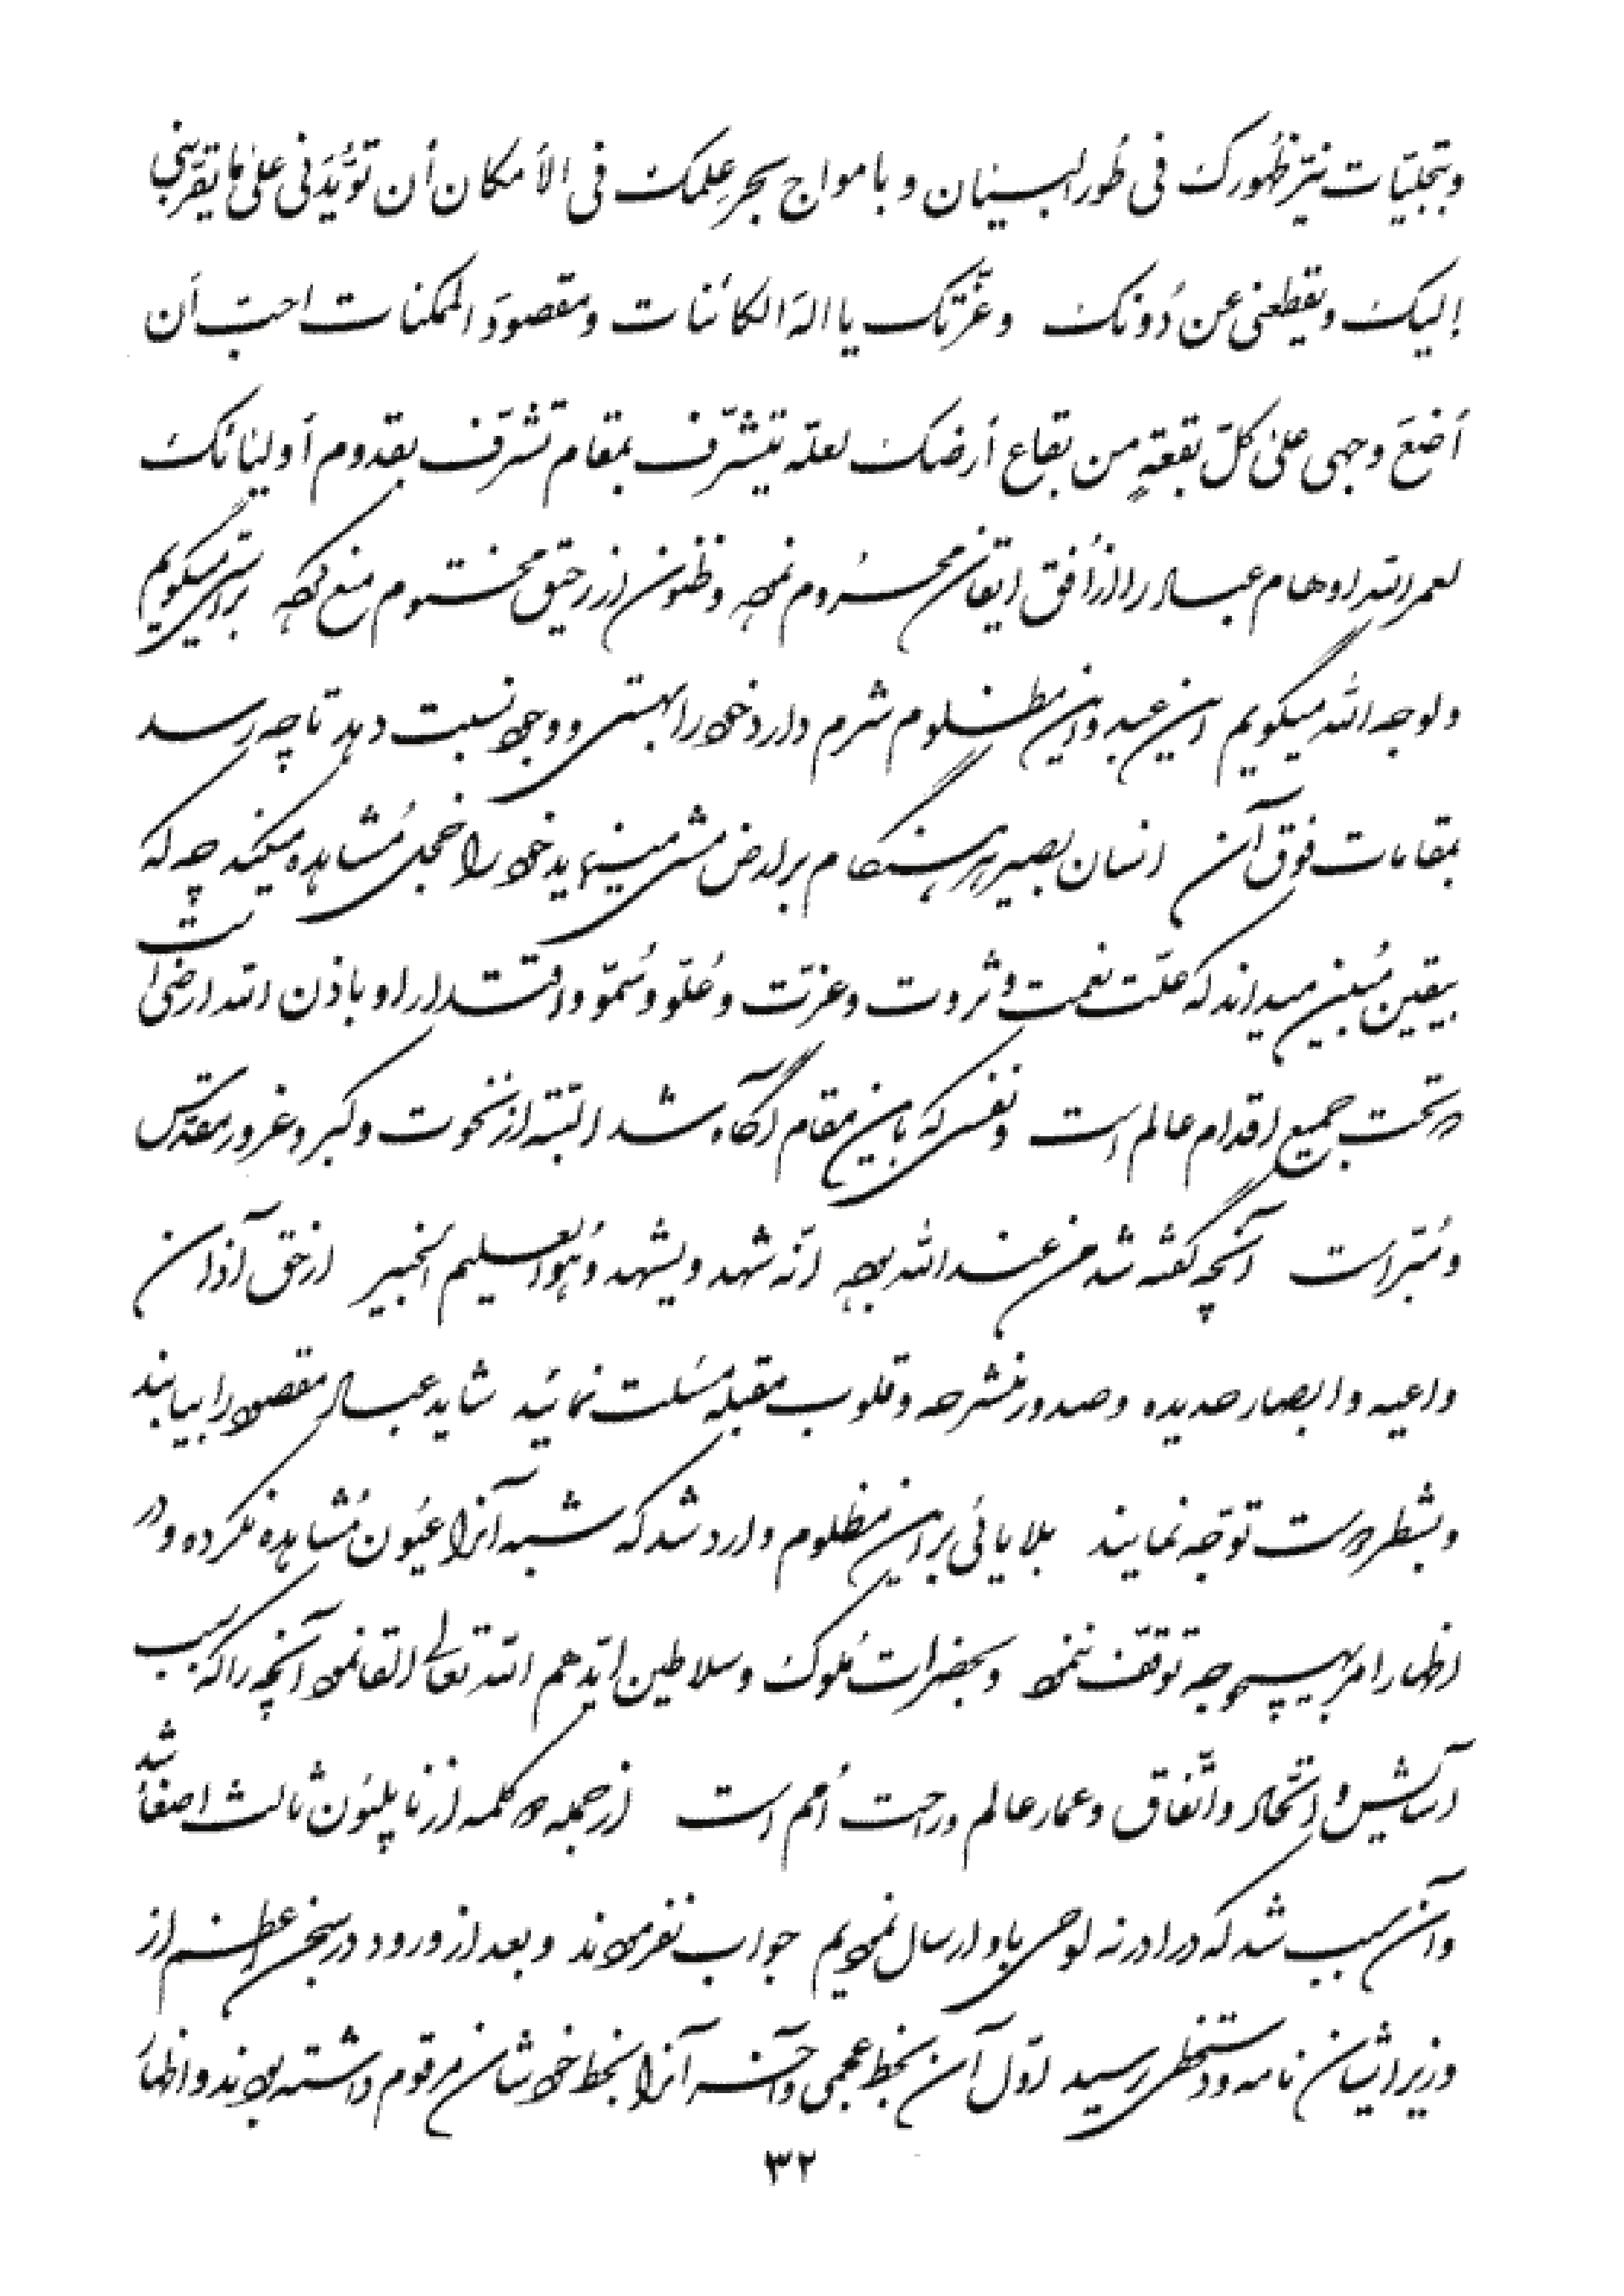 وبتجلّيات نيّر ظُهورك فى طُور السينان وبامواج بحر عِلمك فى الأمكان أن تؤيّدَنى علىٰ ما يقرّبنى
إليك ويقطعنى عن دُونك وعزّتك يا الهَ الكائنات ومقصودَ الممكنات احبّ أن
أضعَ وجهى علىٰ كلّ بقعةٍ من بقاع أرضك لعلّه يتشرّف بمقام تشرّف بقدوم أوليائك
لعمر الله اوهام عباد را از اُفق ايقان محرُوم نموده وظنون از رحيق مختوم منع كرده براستى ميگويم
ولوجه الله ميگويم اين عبد واين مظلوم شرم دارد خود را بهستى ووجود نسبت دهد تا چه رسد
بمقامات فوق آن انسان بصير هر هنگام بر ارض مشى مينمايد خود را خجل مُشاهده ميكند چه كه
بيقين مُبين ميداند كه علّت نعمت وثروت وعزّت وعُلوّ وسُموّ واقتدار او باذن الله ارضى است
كه تحت جميع اقدام عالم است ونفسى كه باين مقام آگاه شد البتّه از نخوت وكبر وغرور مقدّس
ومُبرّاست آنچه گفته شد من عند الله بوده انّه شهد ويشهد وهُو العليم الخبير از حق آذان
واعيه وابصار حديده وصدور منشرحه وقلوب مقبله مسئلت نمائيد شايد عباد مقصود را بيابند
وبشطر دوست توجّه نمايند بلايائى بر اين مظلوم وارد شد كه شبه آنرا عيُون مُشاهده نكرده ودر
اظهار امر بهيچوجه توقّف ننمود وبحضرات مُلوك وسلاطين ايّدهم الله تعالى القا نمود آنچه را كه سبب
آسايش و اتّحاد واتّفاق وعمار عالم وراحت اُمم است از جمله دو كلمه از ناپليُون ثالث اصغا شد
وآن سبب شد كه در ادرنه لوحى باو ارسال نموديم جواب نفرمودند وبعد از ورود در سجن اعظم از
وزير ايشان نامه ودستخطى رسيد اوّل آن بخط عجمى وآخر آنرا بخط خودشان مرقوم داشته بودند واظهار
٣٢